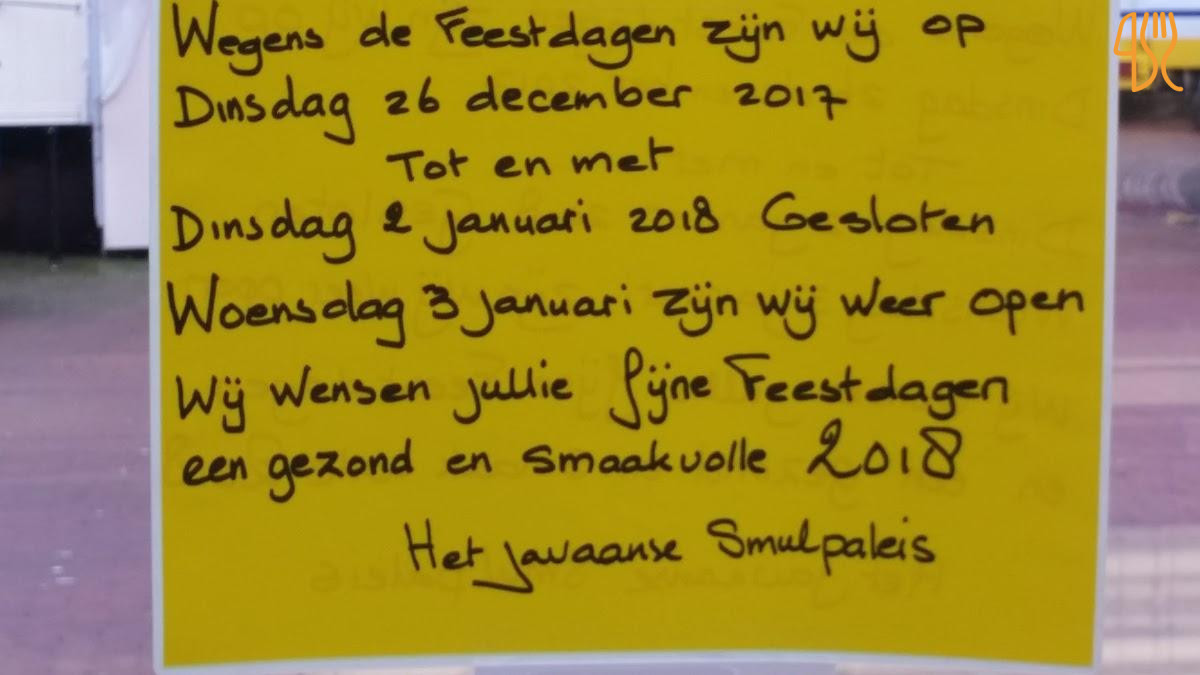 Wegens de Feestdagen zijn wij op
Dinsdag 26 december 2017
Tot en met
Dinsdag 2 januari 2018 Gesloten
Woensdag 3 januari zijn wij weer open
Wij wensen jullie fijne Feestdagen
een gezond en smaakvolle 2018
Het javaanse Smulpaleis